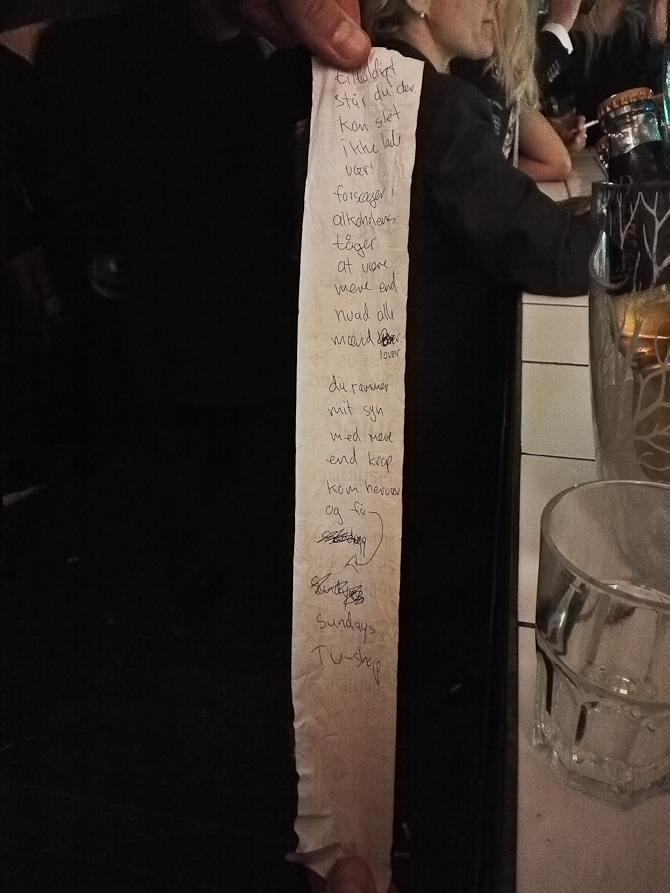 tilfældigt
står du der
kan slet
ikke lade
vær'
forsøger i
alkoholens
tåger
at være
mere end
hvad alle
mænd
lover
du rammer
mit syn
med mere
end krop
kom herover
og få
Sundays
TV-shop